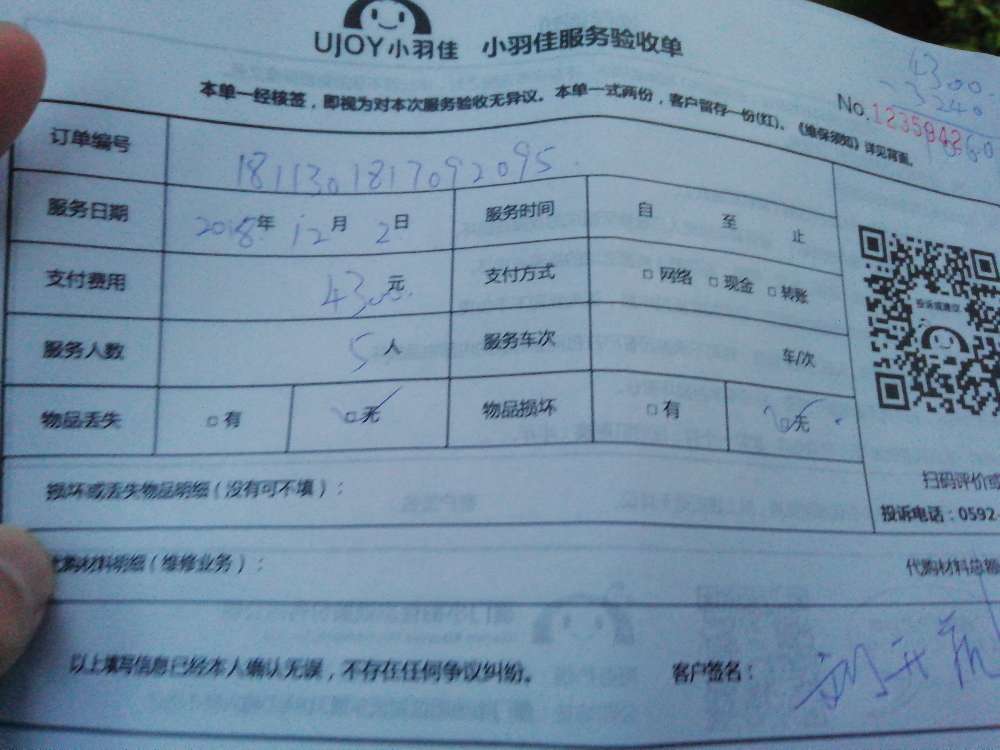 UJOY小羽佳 小羽佳服务验收单
4300
-3240
1060
本单一经核签，即视为对本次服务验收无异议。本单一式两份，客户留存一份(红)。《维保须知》详见背面。
No.1235942
订单编号 1811301817092095
服务日期 2018年 12月 2日 服务时间 自 至 止
支付费用 4300元 支付方式 □网络 □现金 □转账
投诉或建议
服务人数 5人 服务车次 车/次
物品丢失 □有 □无 物品损坏 □有 □无
损坏或丢失物品明细（没有可不填）：
扫码评价或
投诉电话：0592-
代购材料明细（维修业务）： 代购材料总额
以上填写信息已经本人确认无误，不存在任何争议纠纷。 客户签名：